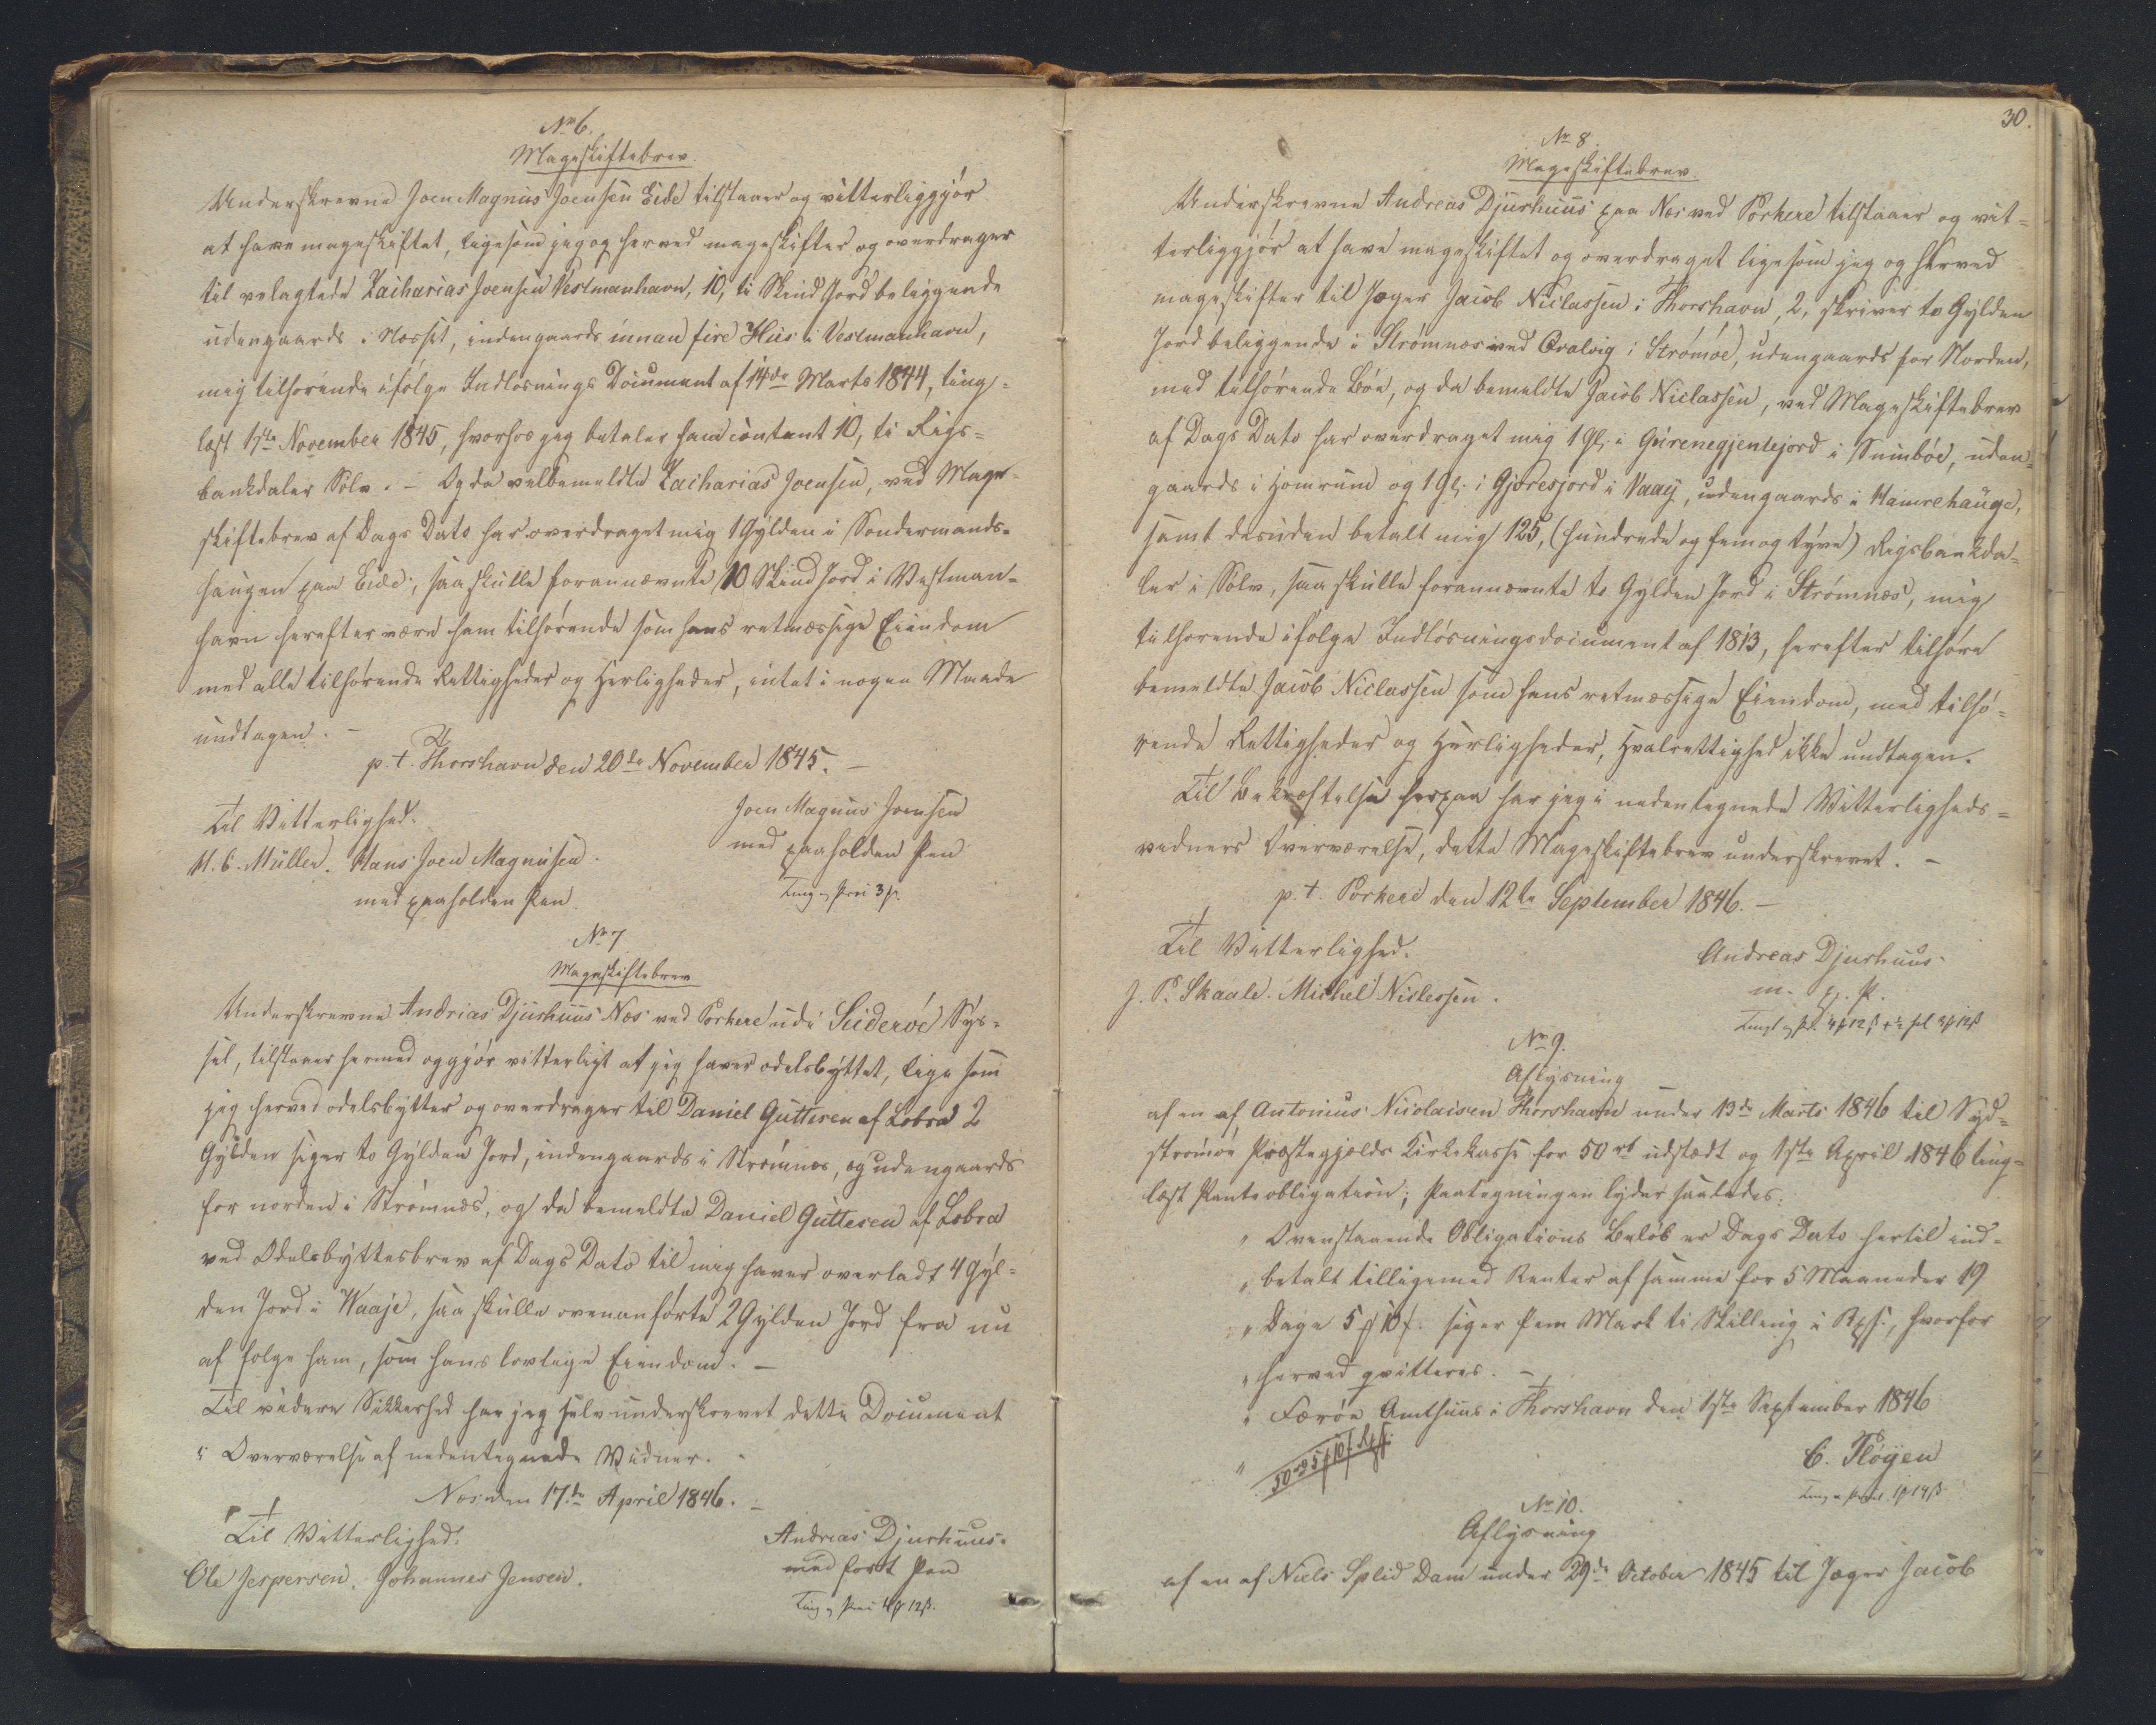 No 6.
Mageskiftebrev.
Underskrevne Joen Magnus Joensen Eide tilstaaer og vitterliggjör
at have mageskiftet, ligesom jeg og herved mageskifter og overdrager
til velagtede Zacharias Joensen Vestmanhavn, 10, ti Skind Jord beliggende
udengaards i Nesset, indengaards innan fire Huus i Vestmanhavn,
mig tilhörende ifölge Indlösnings Document af 14de Marts 1844, ting-
læst 1ste November 1845, hvorhos jeg betaler ham contant 10, ti Rigs-
bankdaler Sölv. - Og da velbemeldte Zacharias Joensen, ved Mage-
skiftebrev af Dags Dato har overdraget mig 1 Gylden i Söndermands-
haugen paa Eide; saa skulle forannævnte 10 Skind Jord i Vestman-
havn herefter være ham tilhörende som hans retmæssige Eiendom
med alle tilhörende Rettigheder og Herligheder, intet i nogen Maade
undtagen. -
p. t. Thorshavn den 20de November 1845. -
Til Vitterlighed. Joen Magnus Joensen
M. C. Müller. Hans Joen Magnusen. med paaholden Pen
med paaholden Pen.
No 7
Mageskiftebrev
Underskrevne Andrias Djurhuus Næs ved Porkere udi Suderöe Sys-
sel, tilstaaer hermed og gjör vitterligt at jeg haver odelsbyttet, lige som
jeg herved odelsbytter og overdrager til Daniel Guttesen af Lobra 2
Gylden siger to Gylden Jord, indengaards i Strömnæs, og udengaards
for norden i Strömnæs, og da bemeldte Daniel Guttesen af Lobra
ved Odelsbyttesbrev af Dags Dato til mig haver overladt 4 Gyl-
den Jord i Waaje, saa skulle ovenanförte 2 Gylden Jord fra nu
af fölge ham, som hans lovlige Eiendom. -
Til videre Sikkerhed har jeg selv underskrevet dette Document
i Overværelse af nedentegnede Vidner. -
Næs den 17de April 1846. -
Til Vitterlighed. Andreas Djurhuus.
Ole Jespersen. Johannes Jensen. med fört Pen
30.
No 8.
Mageskiftebrev.
Underskrevne Andreas Djurhuus paa Næs ved Porkere tilstaaer og vit-
terliggjör at have mageskiftet og overdraget ligesom jeg og herved
mageskifter til Jæger Jacob Niclassen i Thorshavn, 2, skriver to Gylden
Jord beliggende i Strömnæs ved Qvalvig i Strömöe, udengaards for Norden,
med tilhörende Böe, og da bemeldte Jacob Niclassen, ved Mageskiftebrev
af Dags Dato har overdraget mig 1 Gl. i Gürenegjentejord i Sumböe, uden-
gaards i Homrum og 1 Gl. i Gjoresjord i Vaaij, udengaards i Hamrehauge,
samt desuden betalt mig 125, (hundrede og fem og tyve) Rigsbankda-
ler i Sölv, saa skulle forannævnte to Gylden Jord i Strömnæs, mig
tilhörende ifölge Indlösningsdocument af 1813, herefter tilhöre
bemeldte Jacob Niclassen som hans retmæssige Eiendom, med tilhö-
rende Rettigheder og Herligheder, Hvalrettighed ikke undtagen.
Til Bekræftelse herpaa har jeg i nedentegnede Vitterligheds-
vidners Overværelse, dette Mageskiftebrev underskrevet. -
p. t. Porkere den 12te September 1846. -
Til Vitterlighed. Andreas Djurhuus.
J. P. Skaale. Michel Niclessen. m. f. P.
No 9.
Aflysning
af en af Antonius Nicolaisen Thorshavn under 13de Marts 1846 til Syd-
strömöe Præstegjælds Kirkekasse for 50 rb udstædt og 1ste April 1846 ting-
læst Panteobligation; Paategningen lyder saaledes:
" Ovenstaaende Obligations Belöb er Dags Dato hertil ind-
" betalt tilligemed Renter af samme for 5 Maaneder 19
" Dage 5 # 10 s. siger fem Mark ti Skilling i Rss., hvorfor
" herved qvitteres. -
" Færöe Amtshuus i Thorshavn den 1ste September 1846
" 50 rb 5 # 10 s. Rss. C. Plöyen
No 10.
Aflysning
af en af Niels Splid Dam under 29de October 1845 til Jæger Jacob